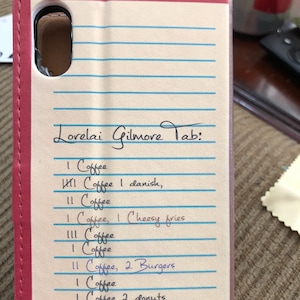 Lorelai Gilmore Tab:
1 Coffee
𝍸 Coffee 1 danish,
11 Coffee
1 Coffee, 1 Cheesy fries
111 Coffee
1 Coffee
11 Coffee, 2 Burgers
1 Coffee
1 Coffee 2 donuts